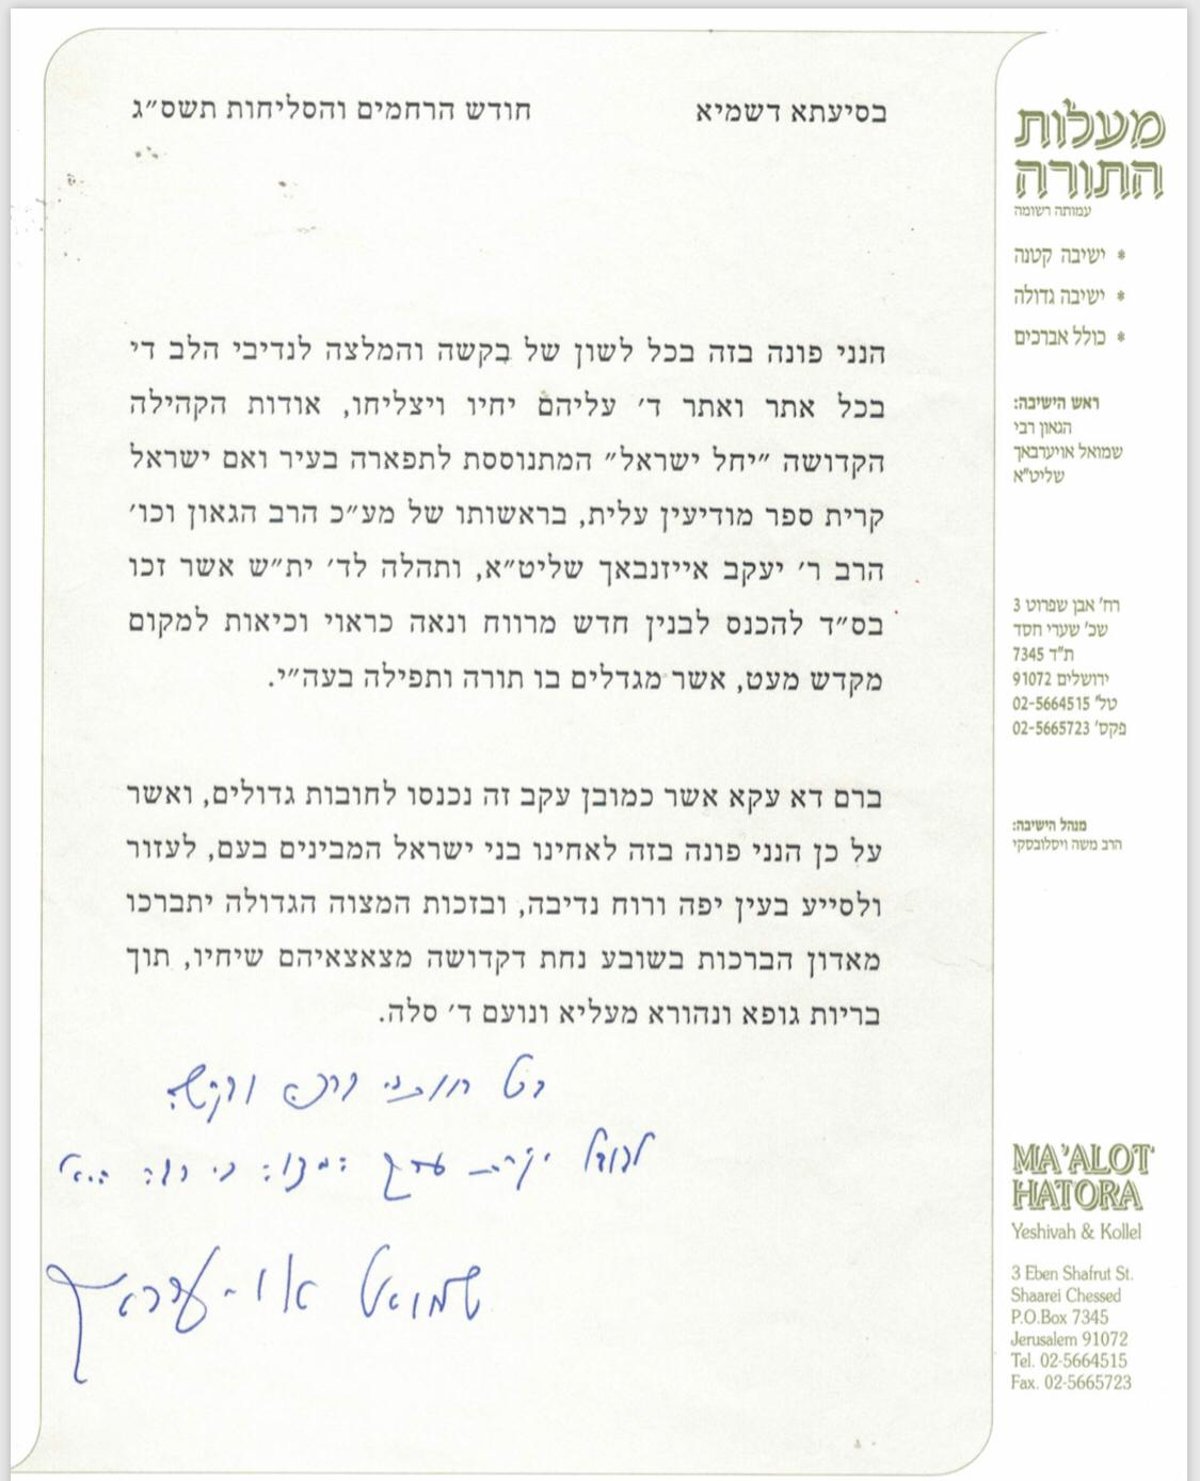 בסיעתא דשמיא
חודש הרחמים והסליחות תשס״ג
הנני פונה בזה בכל לשון של בקשה והמלצה לנדיבי הלב די
בכל אתר ואתר ד׳ עליהם יחיו ויצליחו, אודות הקהילה
הקדושה ״יחל ישראל״ המתנוססת לתפארה בעיר ואם ישראל
קרית ספר מודיעין עלית, בראשותו של מע״כ הרב הגאון וכו׳
הרב ר׳ יעקב אייזנבאך שליט״א, ותהלה לד׳ ית״ש אשר זכו
בס״ד להכנס לבנין חדש מרווח ונאה כראוי וכיאות למקום
מקדש מעט, אשר מגדלים בו תורה ותפילה בעה״י.
ברם דא עקא אשר כמובן עקב זה נכנסו לחובות גדולים, ואשר
על כן הנני פונה בזה לאחינו בני ישראל המבינים בעם, לעזור
ולסייע בעין יפה ורוח נדיבה, ובזכות המצוה הגדולה יתברכו
מאדון הברכות בשובע נחת דקדושה מצאצאיהם שיחיו, תוך
בריות גופא ונהורא מעליא ונועם ד׳ סלה.
לגודל יקרת ערך המצוה כי רבה היא
שמואל אויערבאך
מעלות
התורה
עמותה רשומה
* ישיבה קטנה
* ישיבה גדולה
* כולל אברכים
ראש הישיבה:
הגאון רבי
שמואל אויערבאך
שליט"א
רח' אבן שפרוט 3
שכ' שערי חסד
ת"ד 7345
ירושלים 91072
טל' 02-5664515
פקס' 02-5665723
מנהל הישיבה:
הרב משה ויסלובסקי
MA'ALOT
HATORA
Yeshivah & Kollel
3 Eben Shafrut St.
Shaarei Chessed
P.O.Box 7345
Jerusalem 91072
Tel. 02-5664515
Fax. 02-5665723